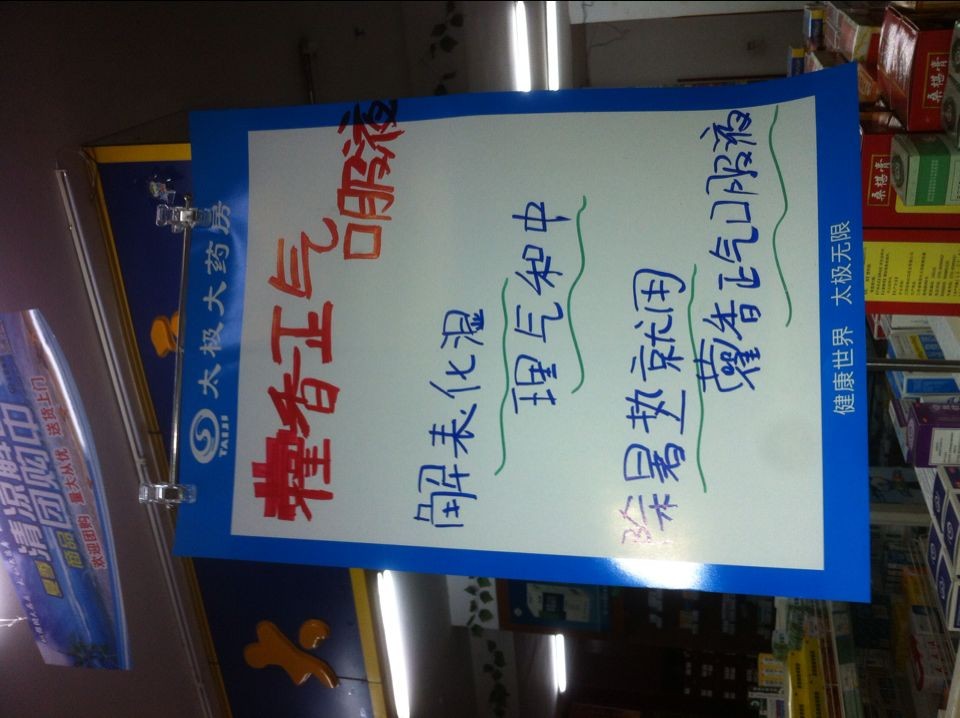 太极大药房
TAIJI
藿香正气
口服液
解表化湿
理气和中
除暑热就用
藿香正气口服液
健康世界 太极无限
清凉解暑
商品团购中
欢迎团购 量大从优 送货上门
桑椹膏
桑椹膏